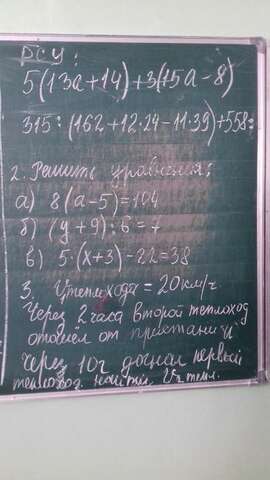 РСУ:
5(13a+14)+3(15a-8)
315:(162+12·24-11·39)+558:
2. Решить уравнения:
а) 8(a-5)=104
б) (y+9):6=7
в) 5·(x+3)-22=38
3. Vтеплохода = 20км/ч.
Через 2 часа второй теплоход
отошёл от пристани и
через 10ч догнал первый
теплоход. найти V2 тепл.